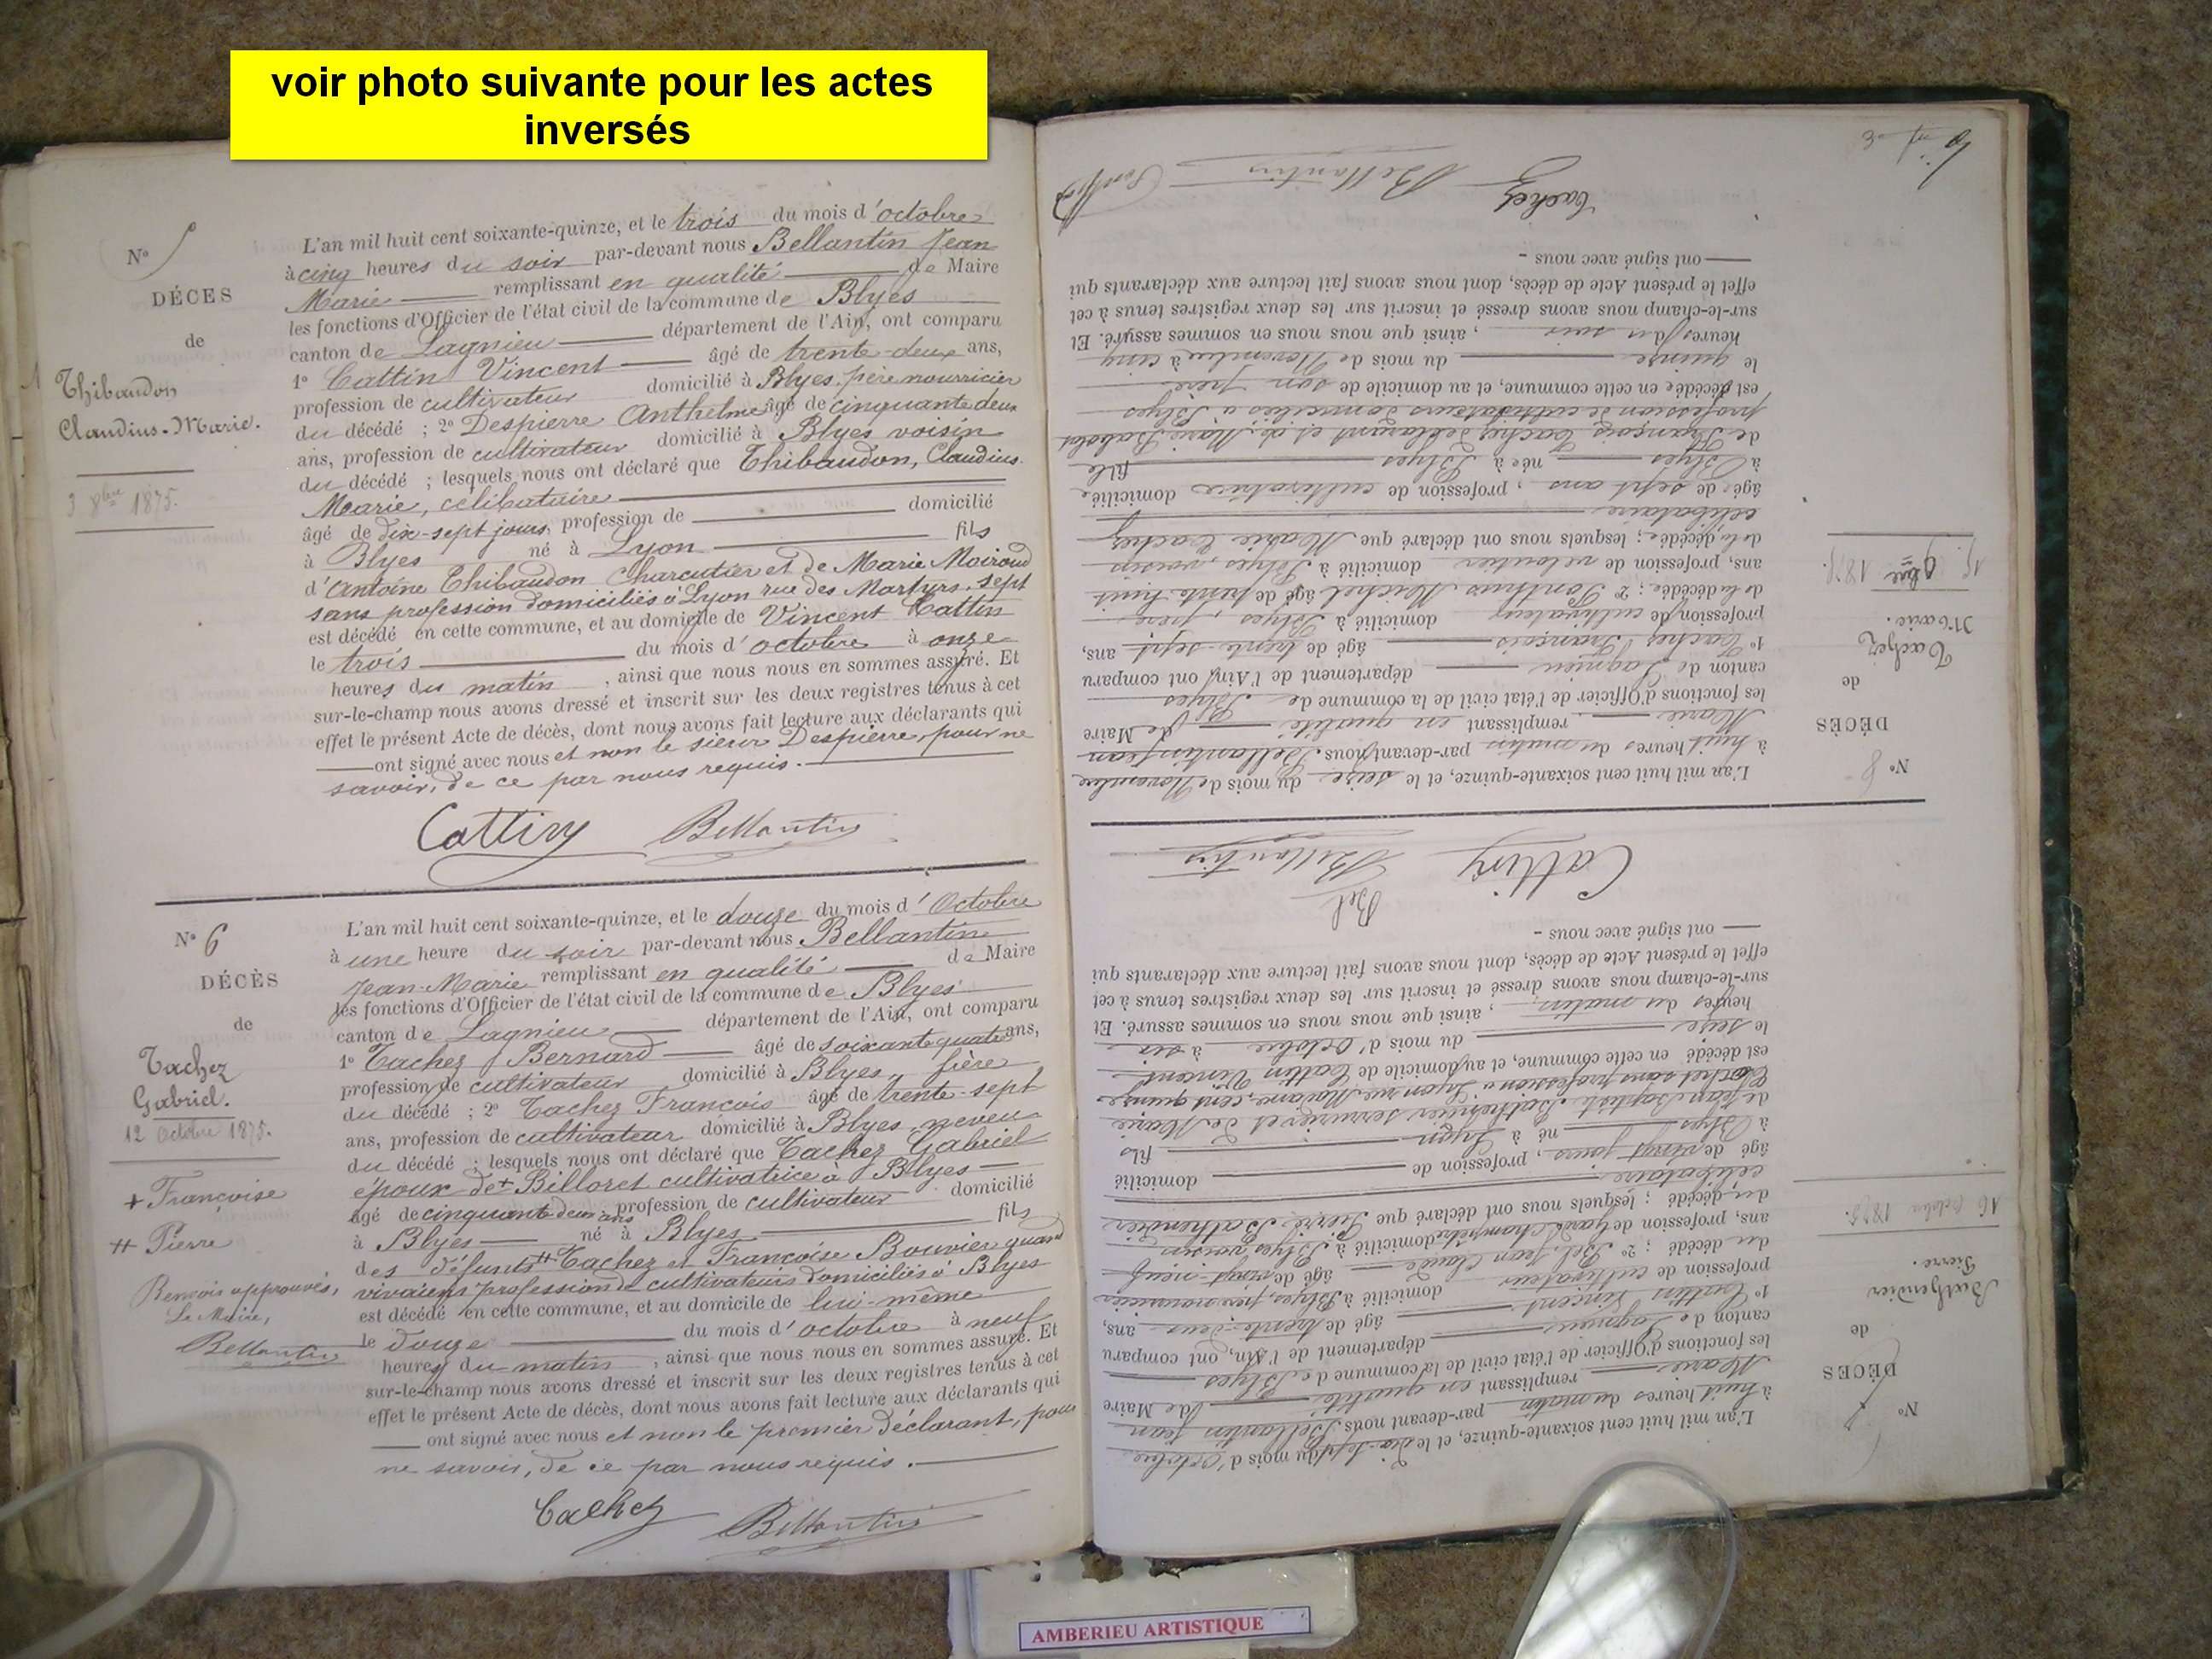 voir photo suivante pour les actes
inversés
N° 5
DÉCES
de
Thibaudon
Claudius-Marie.
3 8bre 1875.
L'an mil huit cent soixante-quinze, et le trois du mois d'octobre
à cinq heures du soir par-devant nous Bellantin Jean
Marie remplissant en qualité de Maire
les fonctions d'Officier de l'état civil de la commune de Blyes
canton de Lagnieu département de l'Ain, ont comparu
1° Cattin Vincent âgé de trente-deux ans,
profession de cultivateur domicilié à Blyes, père nourricier
du décédé ; 2° Despierre Anthelme âgé de cinquante deux
ans, profession de cultivateur domicilié à Blyes voisin
du décédé ; lesquels nous ont déclaré que Thibaudon, Claudius
Marie, célibataire
âgé de dix-sept jours, profession de domicilié
à Blyes né à Lyon fils
d'Antoine Thibaudon Charcutier et de Marie Moiroud
sans profession domiciliés à Lyon rue des Martyrs, sept
est décédé en cette commune, et au domicile de Vincent Cattin
le trois du mois d'octobre à onze
heures du matin, ainsi que nous nous en sommes assuré. Et
sur-le-champ nous avons dressé et inscrit sur les deux registres tenus à cet
effet le présent Acte de décès, dont nous avons fait lecture aux déclarants qui
ont signé avec nous et non le sieur Despierre, pour ne
savoir, de ce par nous requis.
Cattin Bellantin
N° 6
DÉCÈS
de
Tachez
Gabriel.
12 Octobre 1875.
+ Françoise
++ Pierre
Renvois approuvés,
Le Maire,
Bellantin
L'an mil huit cent soixante-quinze, et le douze du mois d'Octobre
à une heure du soir par-devant nous Bellantin
Jean-Marie remplissant en qualité de Maire
les fonctions d'Officier de l'état civil de la commune de Blyes
canton de Lagnieu département de l'Ain, ont comparu
1° Tachez Bernard âgé de soixante quatre ans,
profession de cultivateur domicilié à Blyes, frère
du décédé ; 2° Tachez François âgé de trente-sept
ans, profession de cultivateur domicilié à Blyes neveu
du décédé ; lesquels nous ont déclaré que Tachez Gabriel
époux de + Billoret cultivatrice à Blyes
âgé de cinquante deux ans profession de cultivateur domicilié
à Blyes né à Blyes fils
des défunts ++ Tachez et Françoise Bouvier quand
vivaient profession de cultivateurs domiciliés à Blyes
est décédé en cette commune, et au domicile de lui-même
le douze du mois d'octobre à neuf
heures du matin, ainsi que nous nous en sommes assuré. Et
sur-le-champ nous avons dressé et inscrit sur les deux registres tenus à cet
effet le présent Acte de décès, dont nous avons fait lecture aux déclarants qui
ont signé avec nous et non le premier déclarant, pour
ne savoir, de ce par nous requis.
Tachez Bellantin
N° 7
DÉCÈS
de
Bathendier
Pierre.
16 Octobre 1875.
L'an mil huit cent soixante-quinze, et le dix-sept du mois d'Octobre
à huit heures du matin par-devant nous Bellantin Jean
Marie remplissant en qualité de Maire
les fonctions d'Officier de l'état civil de la commune de Blyes
canton de Lagnieu département de l'Ain, ont comparu
1° Cattin Vincent âgé de trente-deux ans,
profession de cultivateur domicilié à Blyes, père nourricier
du décédé ; 2° Bel Jean Claude âgé de vingt-neuf
ans, profession de garde champêtre domicilié à Blyes voisin
du décédé ; lesquels nous ont déclaré que Pierre Bathendier
célibataire
âgé de vingt jours, profession de domicilié
à Blyes né à Lyon fils
de Jean Baptiste Bathendier serrurier et de Marie
sans profession à Lyon rue cent quinze
est décédé en cette commune, et au domicile de Cattin Vincent
le seize du mois d'Octobre à six
heures du matin, ainsi que nous nous en sommes assuré. Et
sur-le-champ nous avons dressé et inscrit sur les deux registres tenus à cet
effet le présent Acte de décès, dont nous avons fait lecture aux déclarants qui
ont signé avec nous
Bel
Cattin Bellantin
N° 8
DÉCÈS
de
Tachez
Marie.
15 9bre 1875.
L'an mil huit cent soixante-quinze, et le seize du mois de Novembre
à huit heures du matin par-devant nous Bellantin Jean
Marie remplissant en qualité de Maire
les fonctions d'Officier de l'état civil de la commune de Blyes
canton de Lagnieu département de l'Ain, ont comparu
1° Tachez François âgé de trente-sept ans,
profession de cultivateur domicilié à Blyes, père
de la décédée ; 2° Ponthus Michel âgé de trente-huit
ans, profession de domicilié à Blyes, voisin
de la décédée ; lesquels nous ont déclaré que Marie Tachez
célibataire
âgée de sept ans, profession de cultivatrice domiciliée
à Blyes née à Blyes fille
de François Tachez déclarant et de Marie Babolat
profession de cultivateurs domiciliés à Blyes
est décédée en cette commune, et au domicile de son père
le quinze du mois de Novembre à cinq
heures du soir, ainsi que nous nous en sommes assuré. Et
sur-le-champ nous avons dressé et inscrit sur les deux registres tenus à cet
effet le présent Acte de décès, dont nous avons fait lecture aux déclarants qui
ont signé avec nous
Tachez Bellantin
AMBERIEU ARTISTIQUE